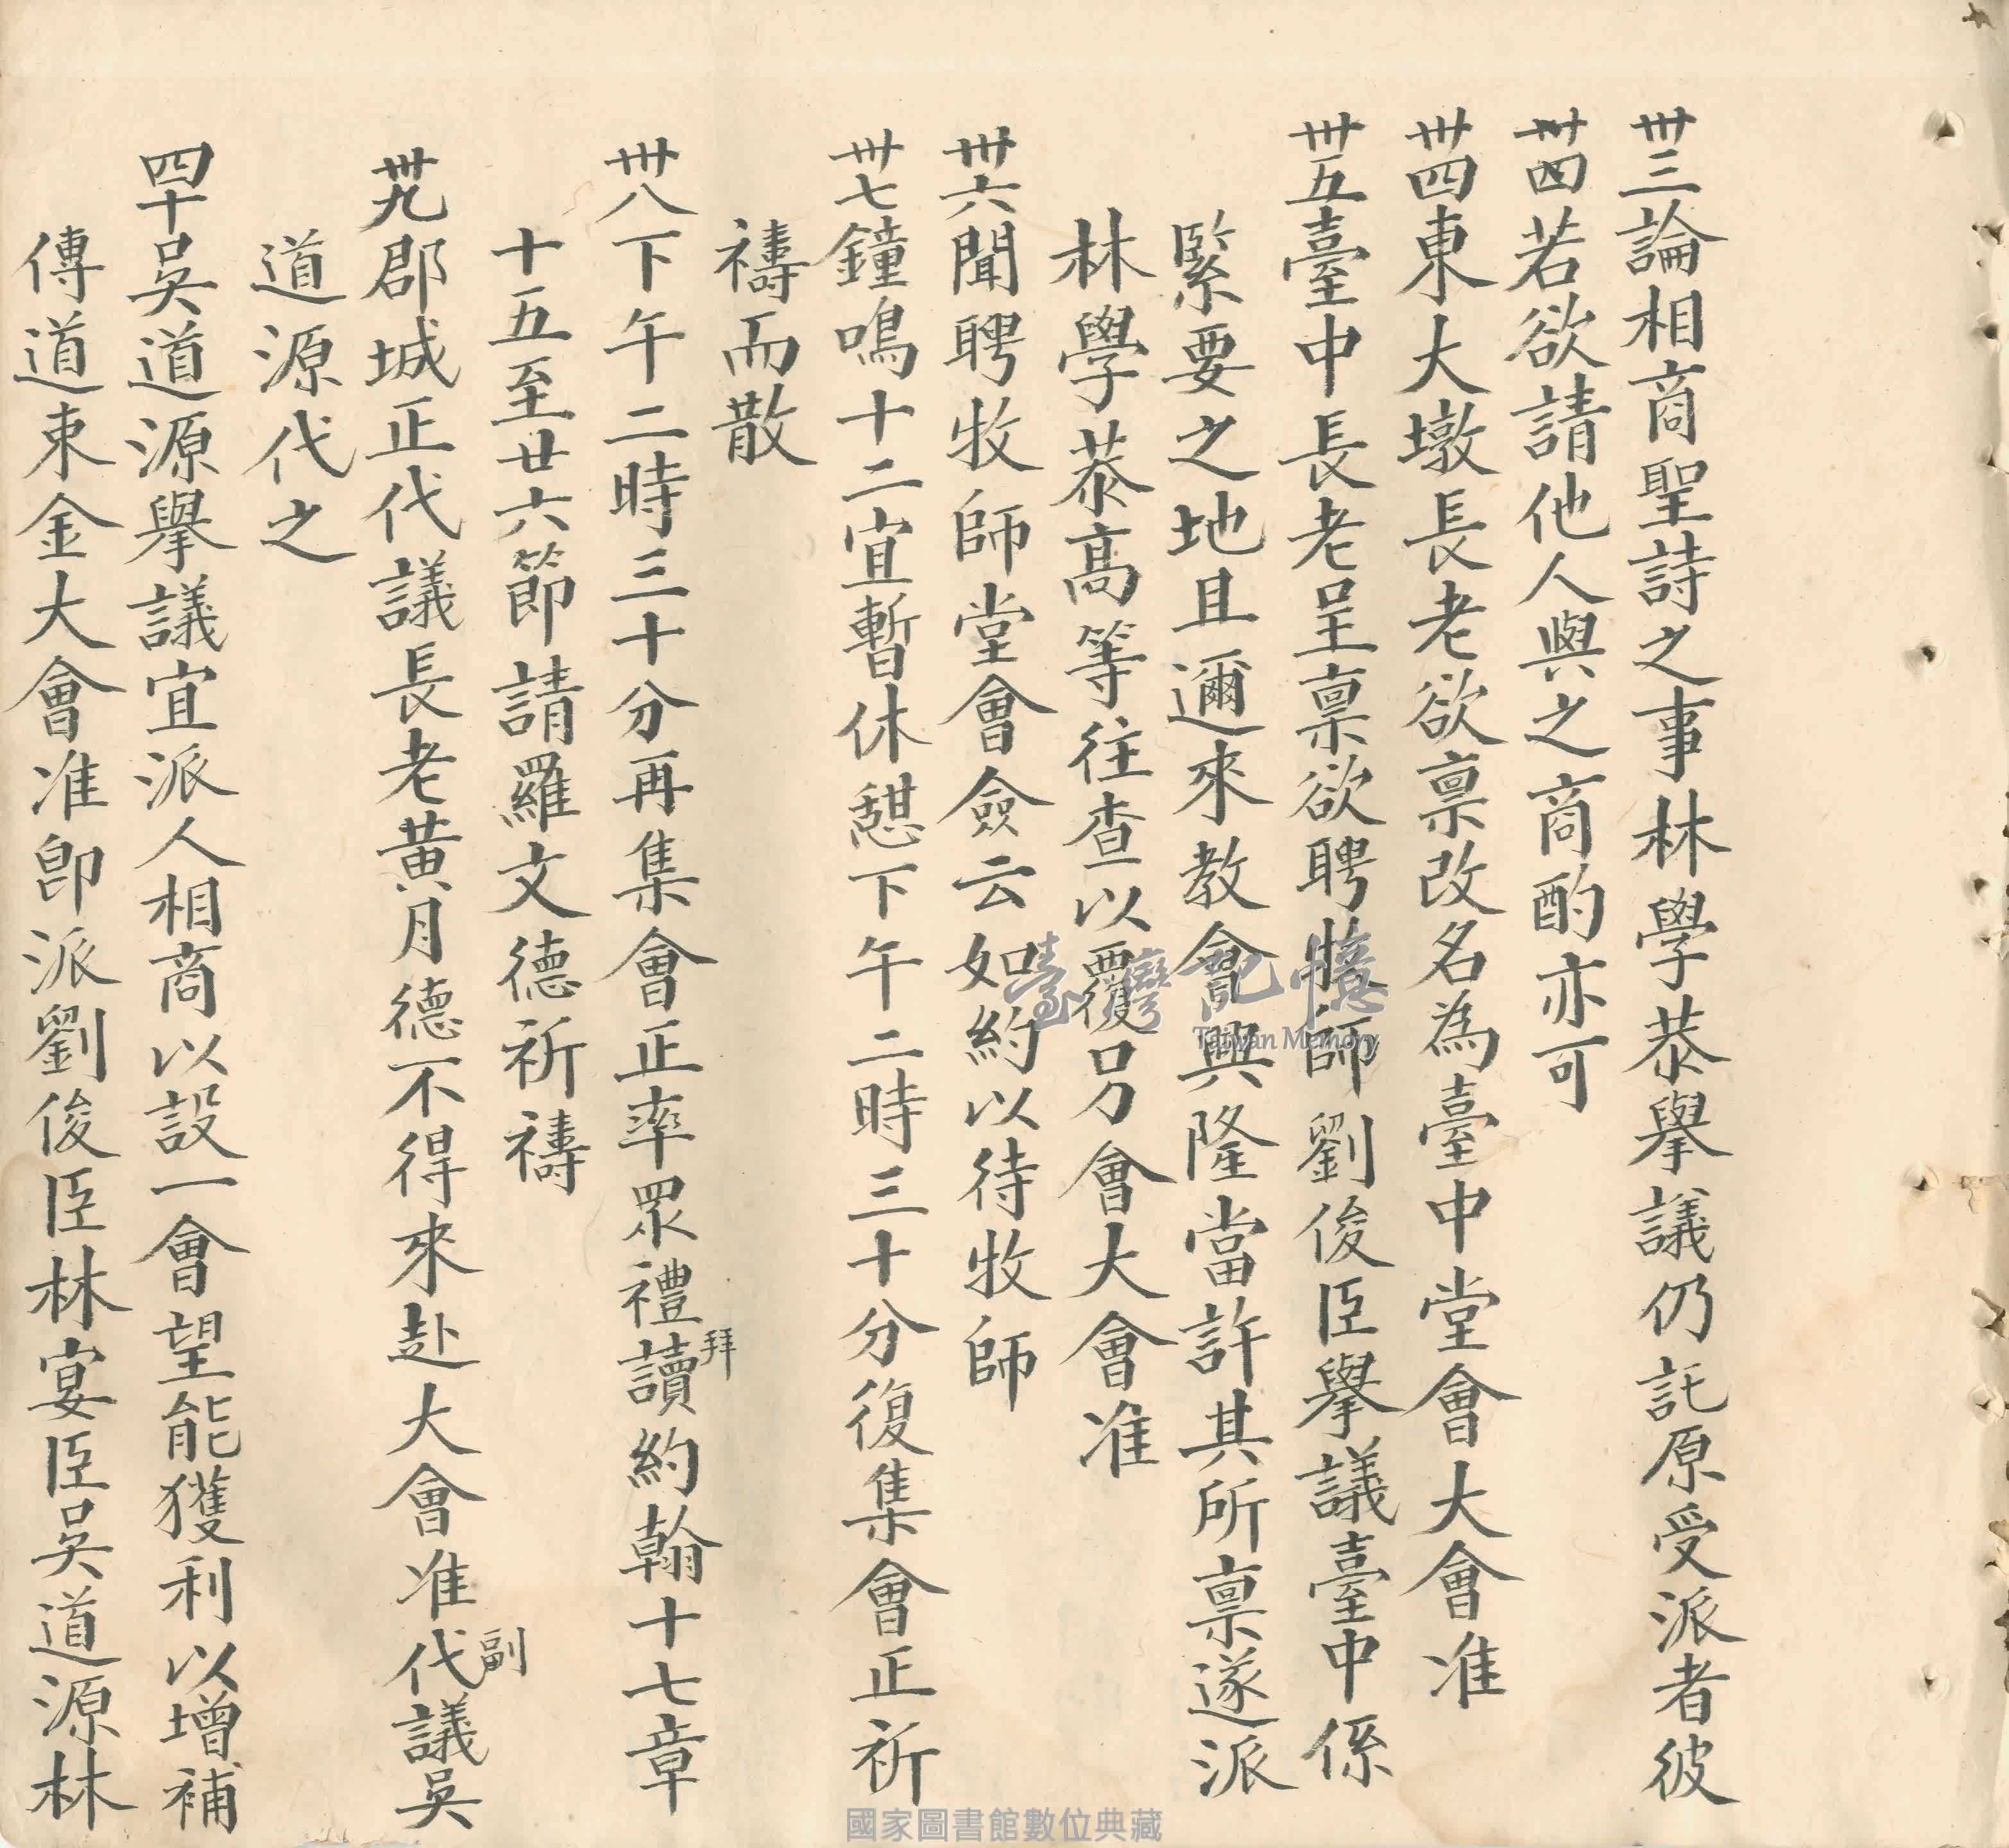 卅三論相商聖詩之事林學恭擧議仍託原受派者彼
卅四若欲請他人與之商酌亦可
卅四東大墩長老欲禀改名為臺中堂會大會准
卅五臺中長老呈禀欲聘牧師劉俊臣擧議臺中係
緊要之地且邇來教會興隆當許其所禀遂派
林學恭高等往查以覆另會大會准
卅六聞聘牧師堂會僉云如約以待牧師
卅七鐘鳴十二宜暫休憩下午二時三十分復集會正祈
禱而散
卅八下午二時三十分再集會正率眾禮拜讀約翰十七章
十五至廿六節請羅文德祈禱
卅九郡城正代議長老黃月德不得來赴大會准副代議吳
道源代之
四十吳道源擧議宜派人相商以設一會望能獲利以增補
傳道束金大會准卽派劉俊臣林宴臣吳道源林
臺灣記憶
Taiwan Memory
國家圖書館數位典藏